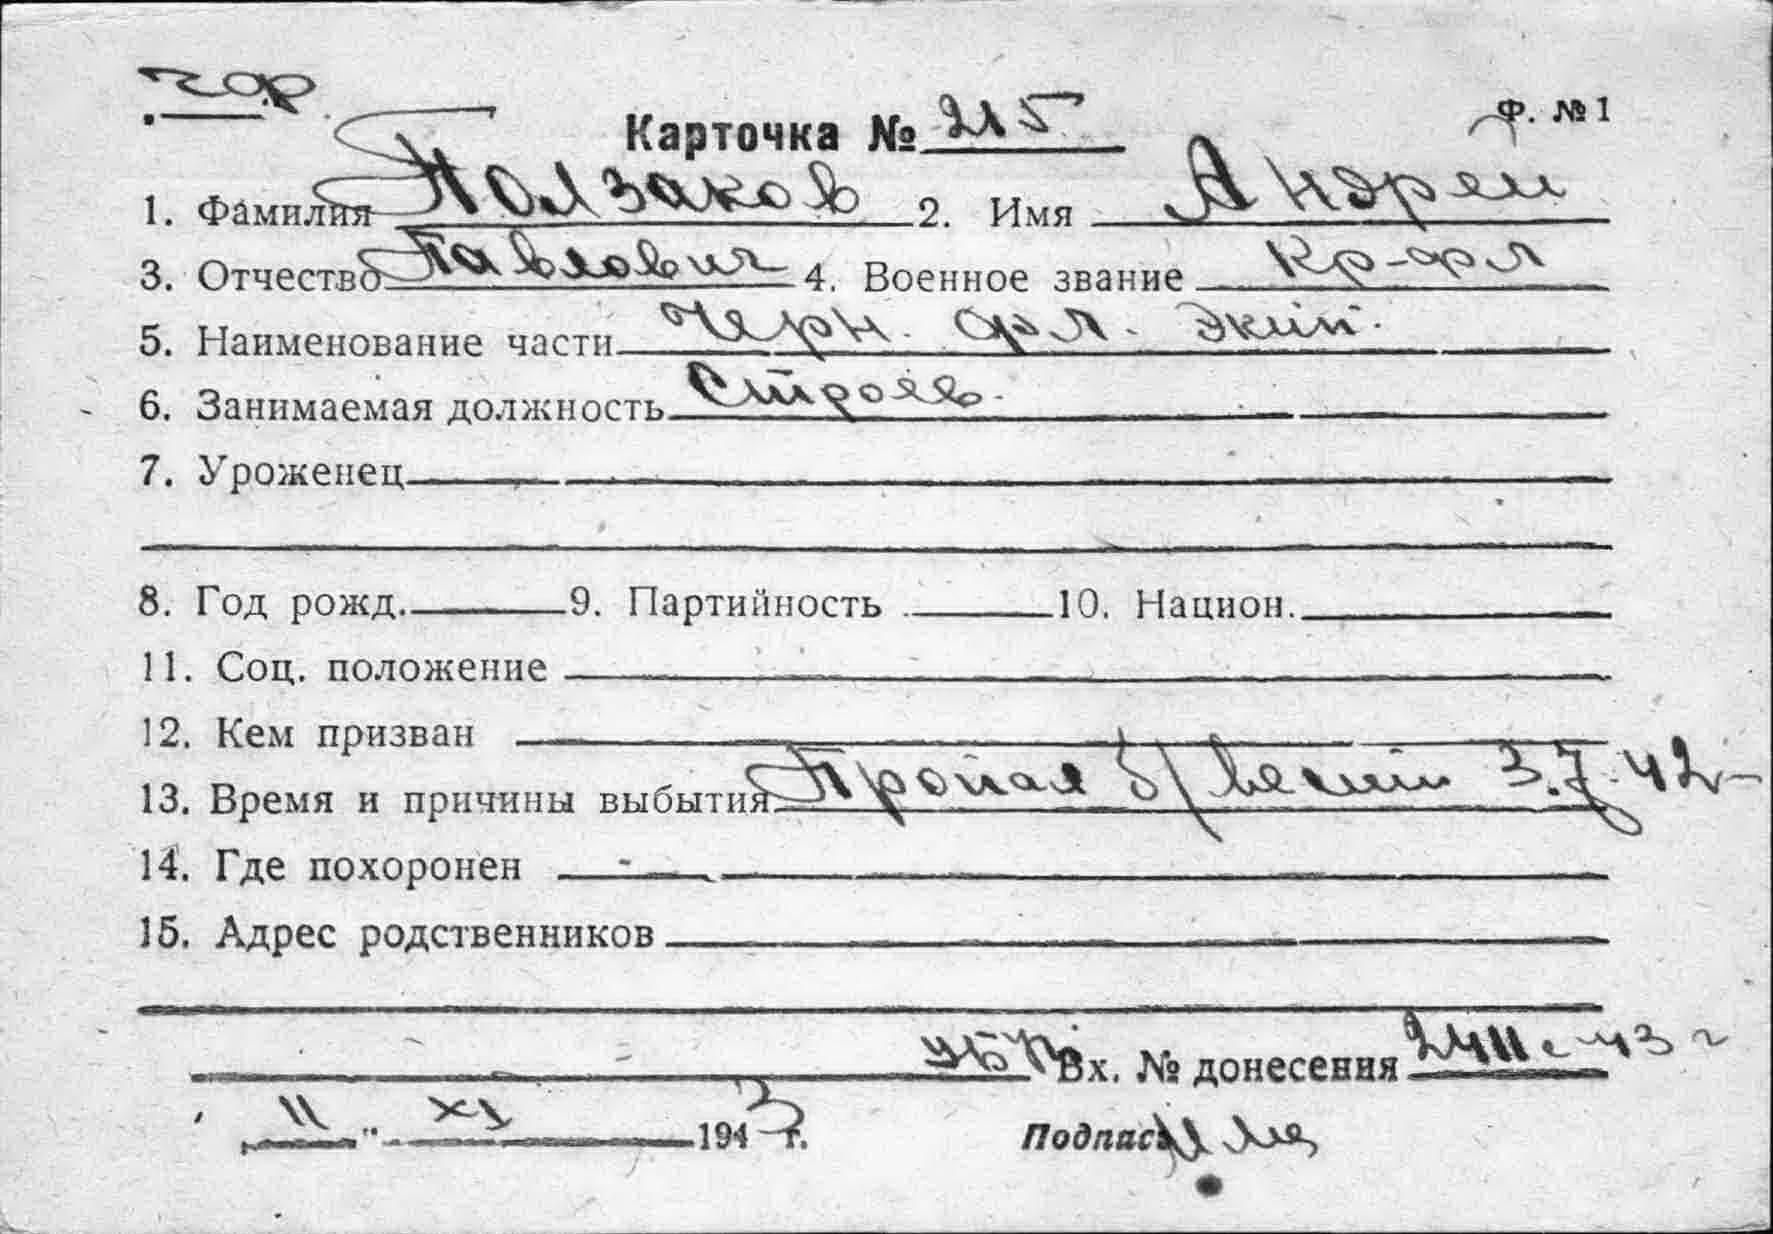 чф
Карточка № 215 Ф. № 1
1. Фамилия Ползаков 2. Имя Андрей
3. Отчество Павлович 4. Военное звание Кр-фл
5. Наименование части Черн. фл. экип.
6. Занимаемая должность Строев.
7. Уроженец
8. Год рожд. 9. Партийность 10. Национ.
11. Соц. положение
12. Кем призван
13. Время и причины выбытия Пропал б/вести 3.7.42
14. Где похоронен
15. Адрес родственников
Вх. № донесения 43 г
„11" XI 1943 г. Подпись